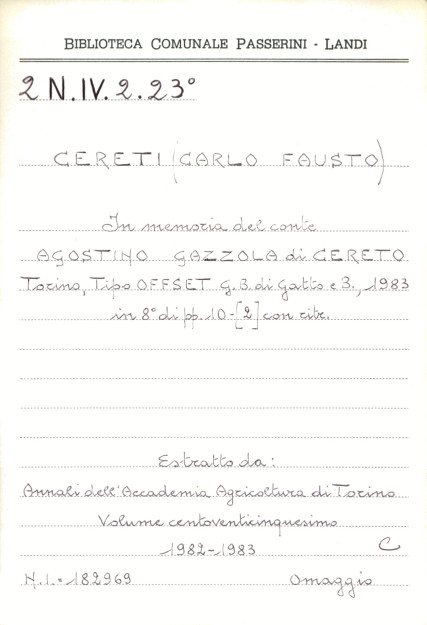 BIBLIOTECA COMUNALE PASSERINI - LANDI
2 N.IV.2.23°
CERETI (CARLO FAUSTO)
In memoria del conte
AGOSTINO GAZZOLA di CERETO
Torino, Tipo OFFSET G.B. di Gatto e B., 1983
in 8° di pp. 10-[2] con ritr.
Estratto da:
Annali dell'Accademia Agricoltura di Torino
Volume centoventicinquesimo
1982-1983 C
N.I.= 182969 Omaggio